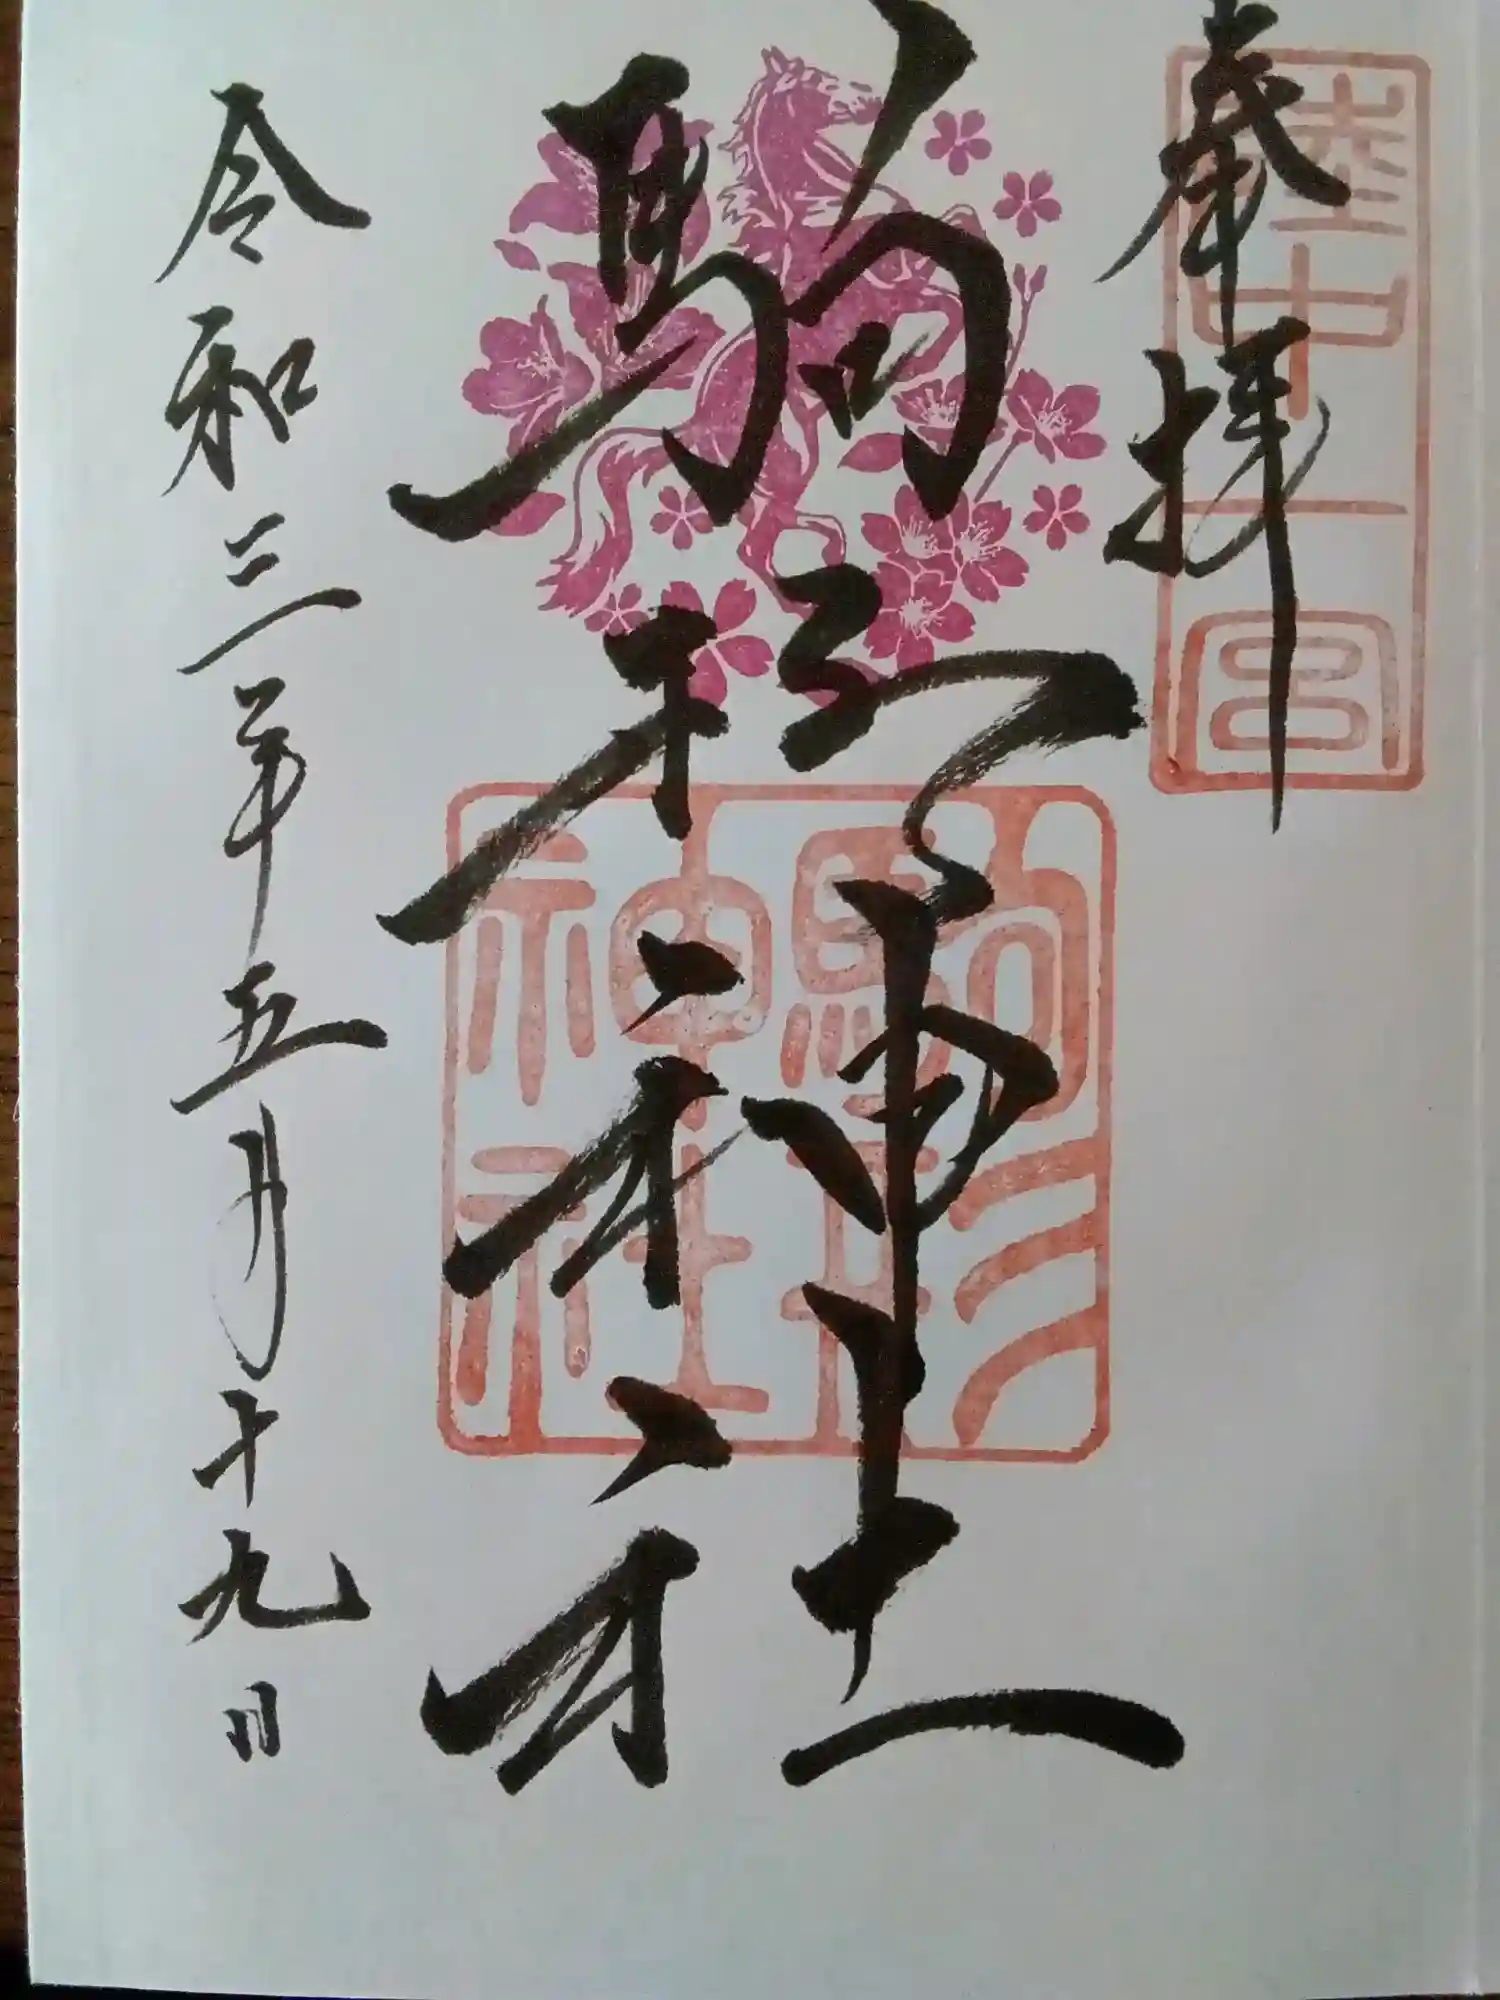 奉拝
陸中一宮
駒形神社
駒形神社
令和三年五月十九日